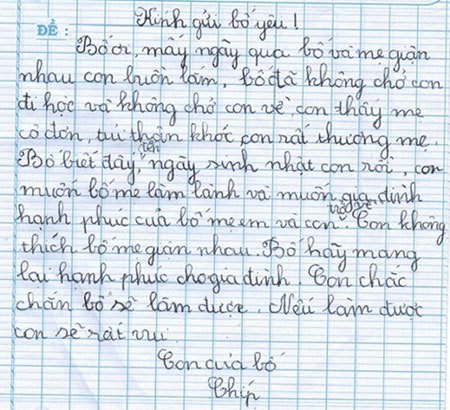 Kính gửi bố yêu!
ĐỀ:
Bố ơi, mấy ngày qua bố và mẹ giận
nhau con buồn lắm, bố đã không chở con
đi học và không chở con về, con thấy mẹ
cô đơn, tủi thân khóc con rất thương mẹ.
Bố biết đấy, đến ngày sinh nhật con rồi, con
muốn bố mẹ làm lành và muốn gia đình
hạnh phúc của bố mẹ em và con. Con không
thích bố mẹ giận nhau. Bố hãy mang
lại hạnh phúc cho gia đình. Con chắc
chắn bố sẽ làm được. Nếu làm được
con sẽ rất vui.
Con của bố
Chíp